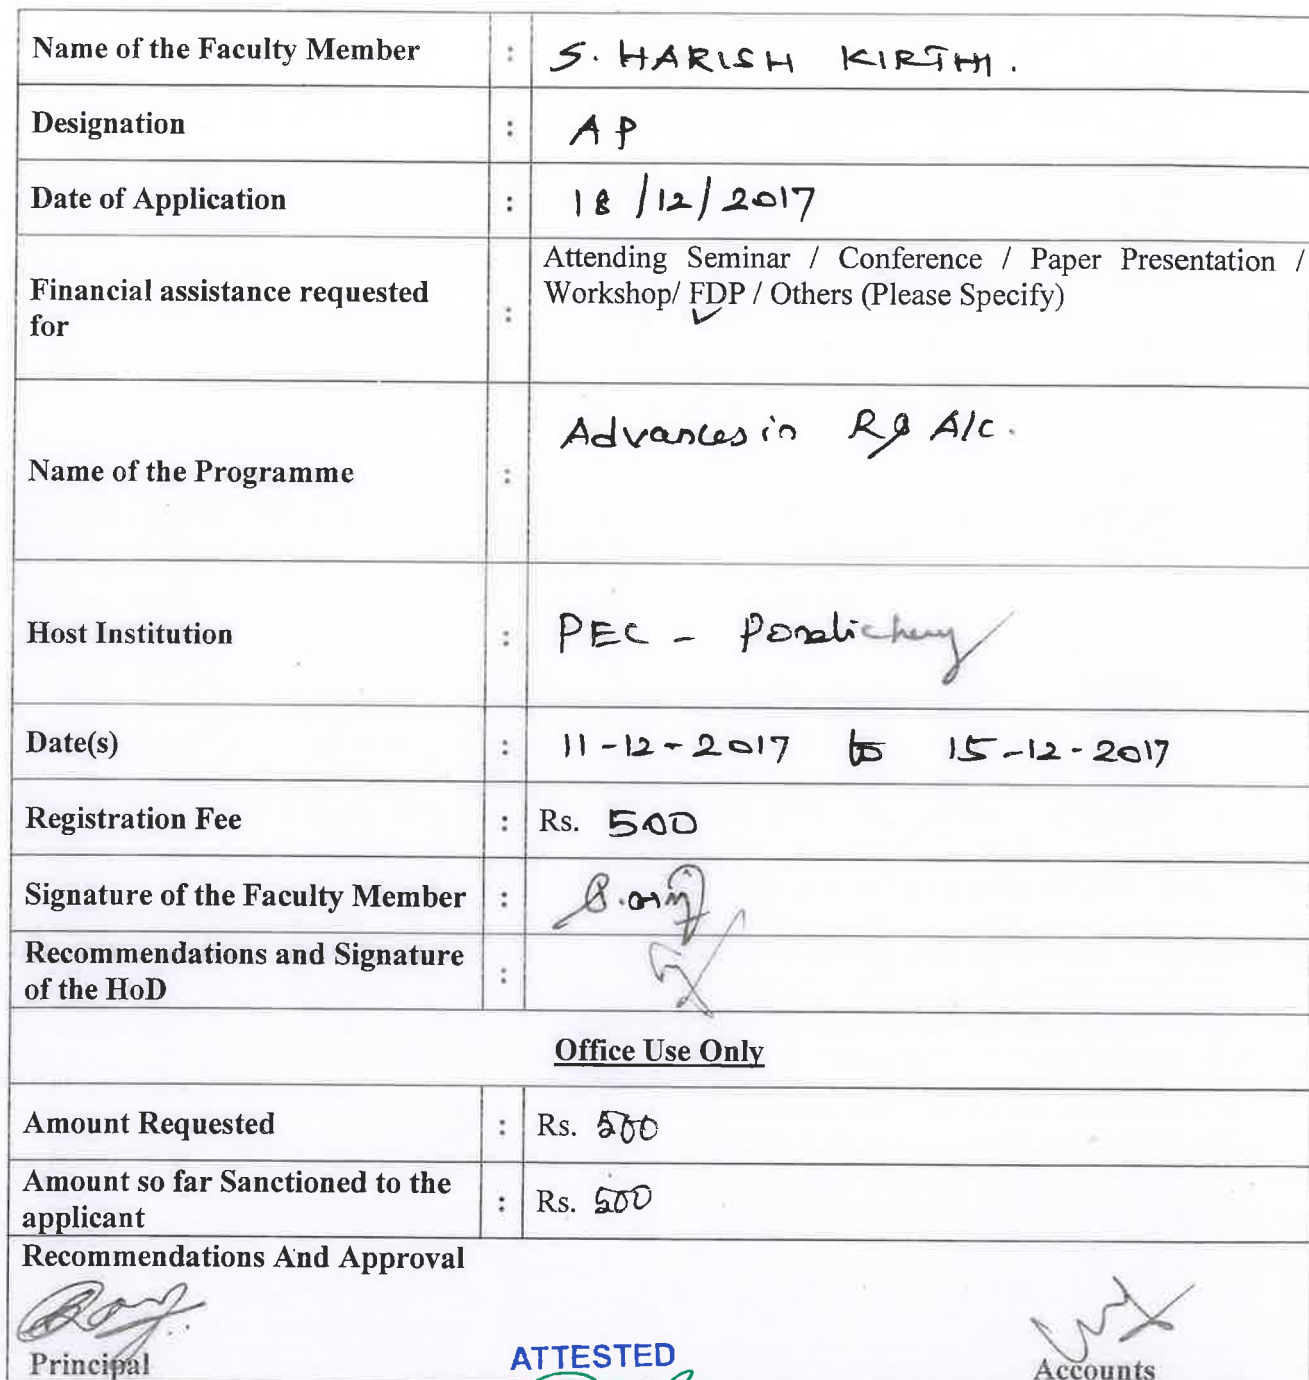 Name of the Faculty Member : S. HARISH KIRTHI.
Designation : AP
Date of Application : 18/12/2017
Financial assistance requested for : Attending Seminar / Conference / Paper Presentation /
Workshop/ FDP / Others (Please Specify)
Name of the Programme : Advances in A/c.
Host Institution : PEC - Pondicherry
Date(s) : 11-12-2017 to 15-12-2017
Registration Fee : Rs. 500
Signature of the Faculty Member :
Recommendations and Signature
of the HoD :
Office Use Only
Amount Requested : Rs. 500
Amount so far Sanctioned to the
applicant : Rs. 500
Recommendations And Approval
Principal ATTESTED Accounts